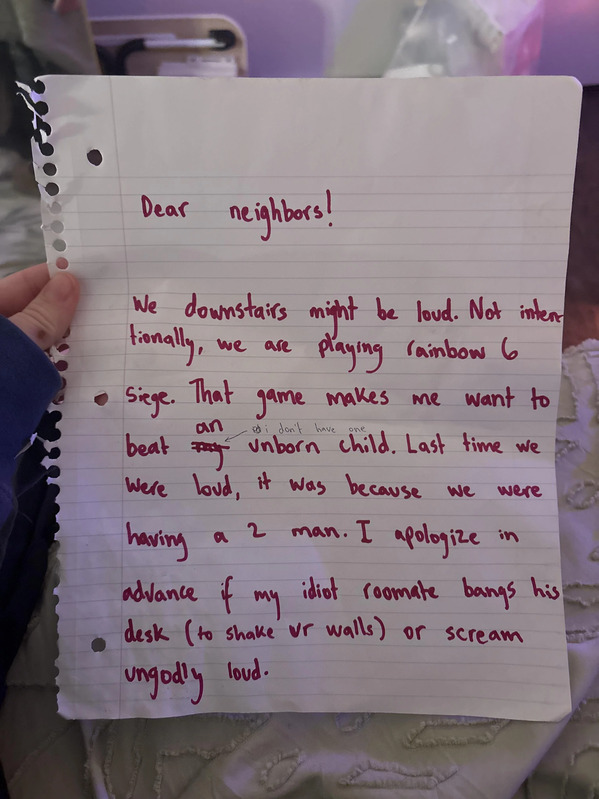 Dear neighbors!
We downstairs might be loud. Not inten-
tionally, we are playing rainbow 6
siege. That game makes me want to
an
i don't have one
beat my unborn child. Last time we
were loud, it was because we were
having a 2 man. I apologize in
advance if my idiot roomate bangs his
desk (to shake ur walls) or scream
ungodly loud.